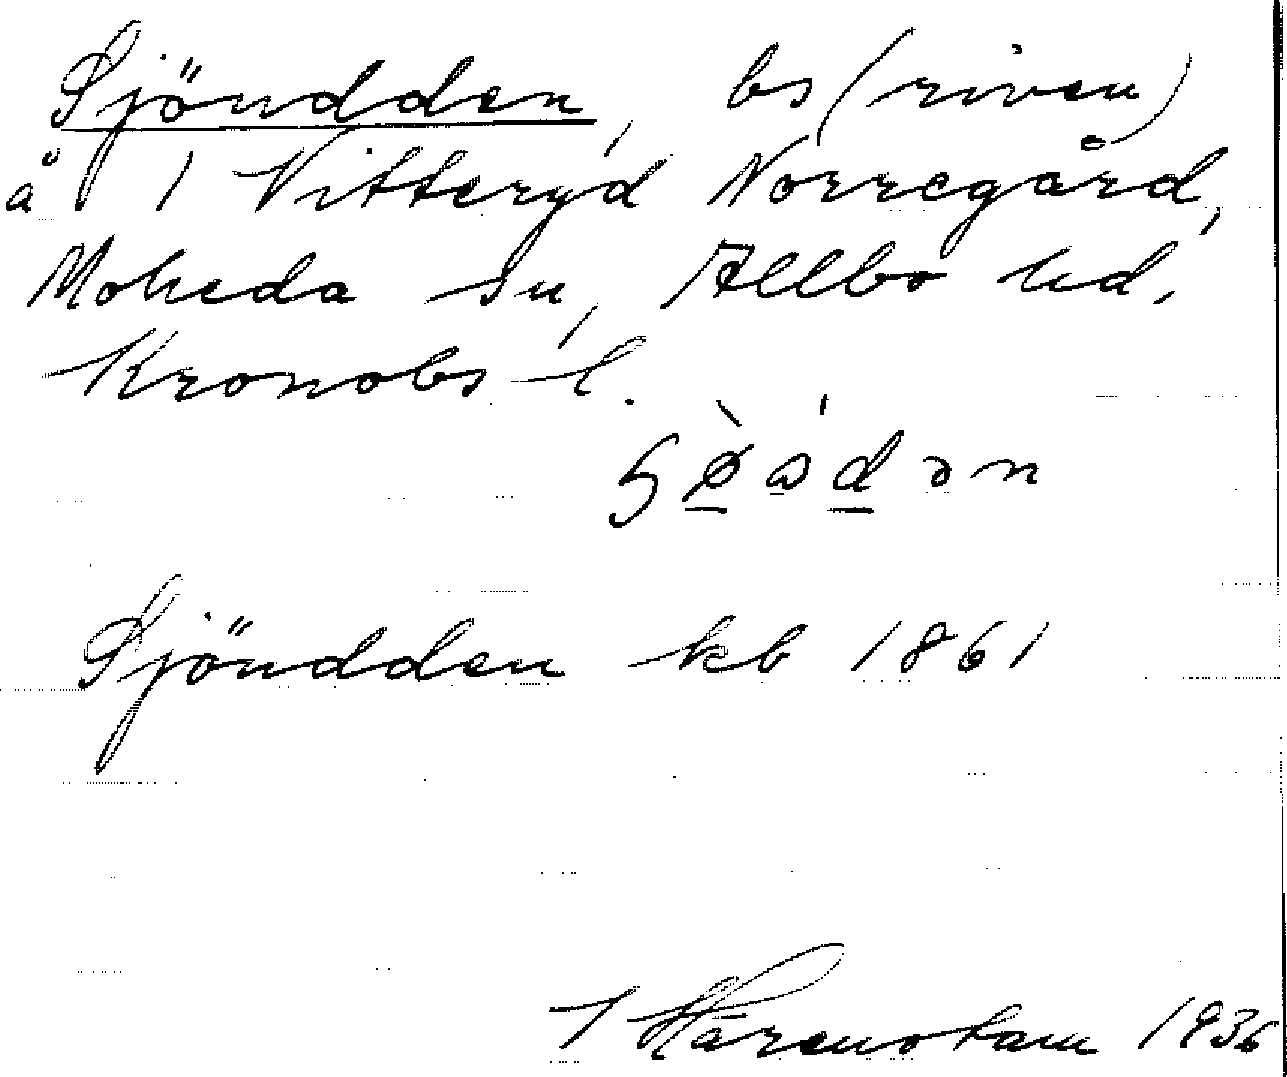 Sjöudden, bs (riven)
å 1 Vitteryd Norregård,
Moheda sn, Allbo hd,
Kronobs l.
Sjöudden kb 1861
Härenstam 1936